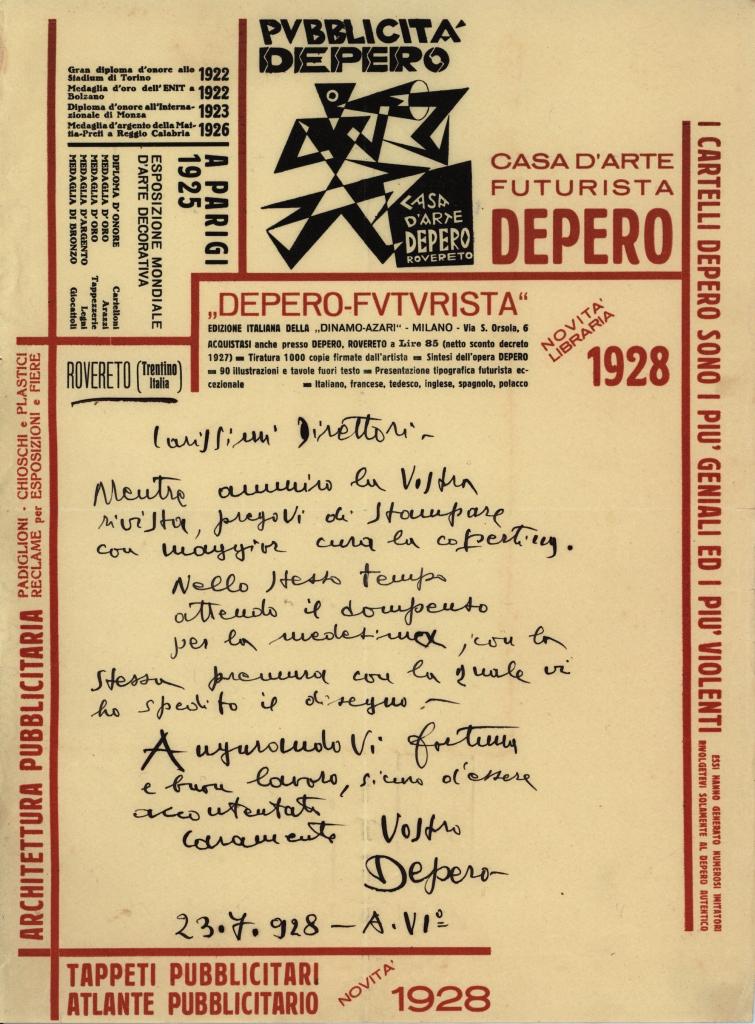 PVBBLICITA'
DEPERO
Gran diploma d'onore allo
Stadium di Torino 1922
Medaglia d'oro dell'ENIT a
Bolzano 1922
Diploma d'onore all'Interna-
zionale di Monza 1923
Medaglia d'argento della Mat-
tia-Preti a Reggio Calabria 1926
A PARIGI
1925
ESPOSIZIONE MONDIALE
D'ARTE DECORATIVA
DIPLOMA D'ONORE Cartelloni
MEDAGLIA D'ORO Arazzi
MEDAGLIA D'ORO Tappezzerie
MEDAGLIA D'ARGENTO Legni
MEDAGLIA DI BRONZO Giocattoli
CASA
D'ARTE
DEPERO
ROVERETO
CASA D'ARTE
FUTURISTA
DEPERO
„DEPERO-FVTVRISTA“
EDIZIONE ITALIANA DELLA „DINAMO-AZARI“ - MILANO - Via S. Orsola, 6
ACQUISTASI anche presso DEPERO, ROVERETO a Lire 85 (netto sconto decreto
1927) = Tiratura 1000 copie firmate dall'artista = Sintesi dell'opera DEPERO
= 90 illustrazioni e tavole fuori testo = Presentazione tipografica futurista ec-
cezionale = Italiano, francese, tedesco, inglese, spagnolo, polacco
NOVITA'
LIBRARIA
1928
ROVERETO (Trentino
Italia)
Carissimi Direttori -
Mentre ammiro la Vostra
rivista, pregoVi di stampare
con maggior cura la copertina.
Nello stesso tempo
attendo il compenso
per la medesima, con la
stessa premura con la quale vi
ho spedito il disegno. -
AugurandoVi fortuna
e buon lavoro, sicuro d'essere
accontentato
caramente Vostro
Depero
23.7.928 - A. VIº
PADIGLIONI - CHIOSCHI e PLASTICI
RECLAME per ESPOSIZIONI e FIERE
ARCHITETTURA PUBBLICITARIA
I CARTELLI DEPERO SONO I PIU' GENIALI ED I PIU' VIOLENTI
ESSI HANNO GENERATO NUMEROSI IMITATORI
RIVOLGETEVI SOLAMENTE AL DEPERO AUTENTICO
TAPPETI PUBBLICITARI
ATLANTE PUBBLICITARIO
NOVITA' 1928